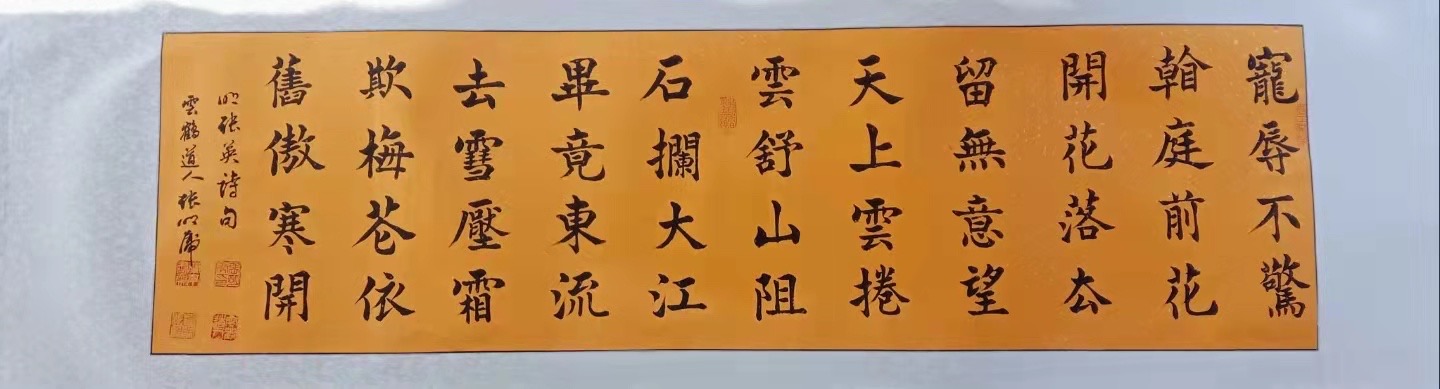 寵辱不驚
翰庭前花
開花落去
留無意望
天上雲捲
雲舒山阻
石攔大江
畢竟東流
去雪壓霜
欺梅花依
舊傲寒開
明張英詩句
雲鶴道人張明庸